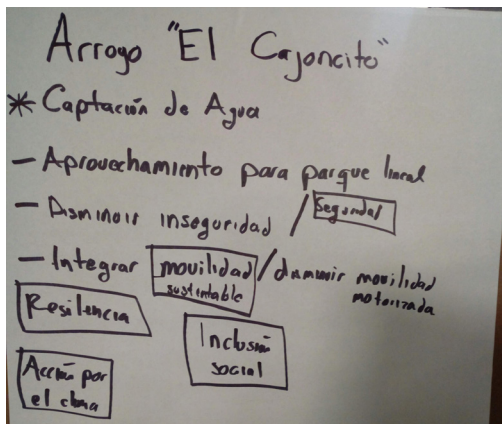 Arroyo "El Cajoncito"
* Captación de Agua
- Aprovechamiento para parque lineal
- Disminuir inseguridad / Seguridad
- Integrar movilidad / disminuir movilidad
sustentable motorizada
Resilencia
Inclusión
social
Acción por
el clima